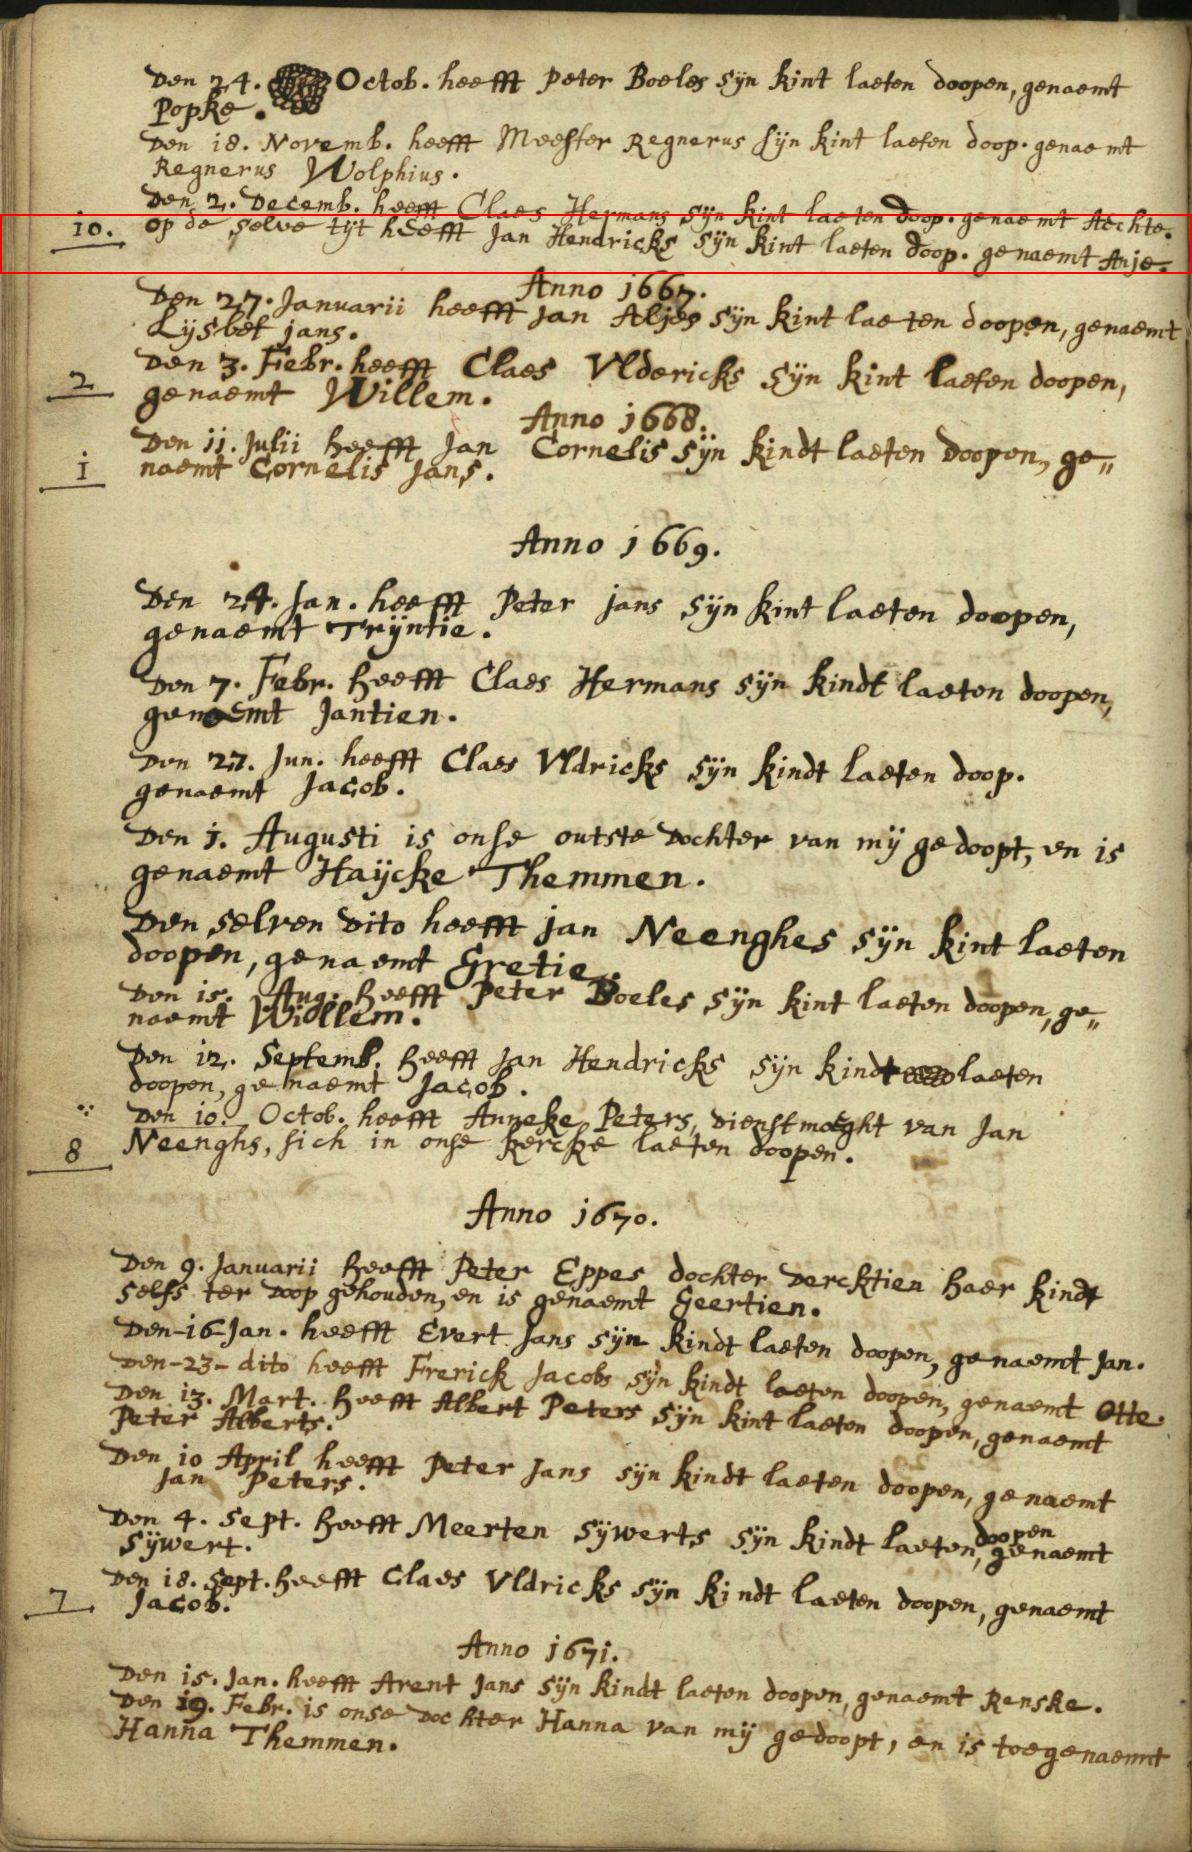 Den 24. Octob. heefft Peter Boeles sÿn kint laeten doopen, genaemt
Popke.
Den 18. Novemb. heefft Meester Regnerus sÿn kint laeten doop. genaemt
Regnerus Wolphius.
Den 2. Decemb. heefft Claes Hermans sÿn kint laeten doop. genaemt Aechte.
10. op de selve tijt heefft Jan Hendricks sÿn kint laeten doop. genaemt Anje.
Anno 1667.
Den 27. Januarii heefft Jan Aljes sÿn kint laeten doopen, genaemt
Lijsbet jans.
Den 3. Febr. heefft Claes Vldericks sÿn kint laeten doopen,
2 genaemt Willem.
Anno 1668.
Den 11. Julii heefft Jan Cornelis sÿn kindt laeten doopen, ge„
1 naemt Cornelis Jans.
Anno 1669.
Den 24. Jan. heefft Peter jans sÿn kint laeten doopen,
genaemt Trÿntie.
Den 7. Febr. heefft Claes Hermans sÿn kindt laeten doopen,
genaemt Jantien.
Den 27. Jun. heefft Claes Vldricks sÿn kindt laeten doop.
genaemt Jacob.
Den 1. Augusti is onse outste Dochter van mÿ gedoopt, en is
genaemt Haÿcke Themmen.
Den selven Dito heefft jan Neenghes sÿn kint laeten
doopen, genaemt Gretie.
Den 15. Aug. heefft Peter Boeles sÿn kint laeten doopen, ge„
naemt Willem.
Den 12. Septemb. heefft Jan Hendricks sÿn kindt laeten
doopen, genaemt Jacob.
Den 10. Octob. heefft Anneke Peters, dienstmaeght van Jan
8 Neenghs, sich in onse kercke laeten doopen.
Anno 1670.
Den 9. Januarii heefft Peter Eppes dochter Dercktien haer kindt
selfs ter Doop gehouden, en is genaemt Geertien.
Den-16-Jan. heefft Evert Jans sÿn kindt laeten doopen, genaemt Jan.
Den-23-dito heefft Frerick Jacobs sÿn kindt laeten doopen, genaemt Otte.
Den 13. Mart. heefft Albert Peters sÿn kint laeten doopen, genaemt
Peter Alberts.
Den 10 April heefft Peter Jans sÿn kindt laeten doopen, genaemt
Jan Peters.
Den 4. Sept. heefft Meerten Sÿwerts sÿn kindt laeten doopen, genaemt
Sÿwert.
Den 18. Sept. heefft Claes Vldricks sÿn kindt laeten doopen, genaemt
7 Jacob.
Anno 1671.
Den 15. Jan. heefft Arent Jans sÿn kindt laeten doopen, genaemt Renske.
Den 19. Febr. is onse Dochter Hanna van mÿ gedoopt, en is toegenaemt
Hanna Themmen.